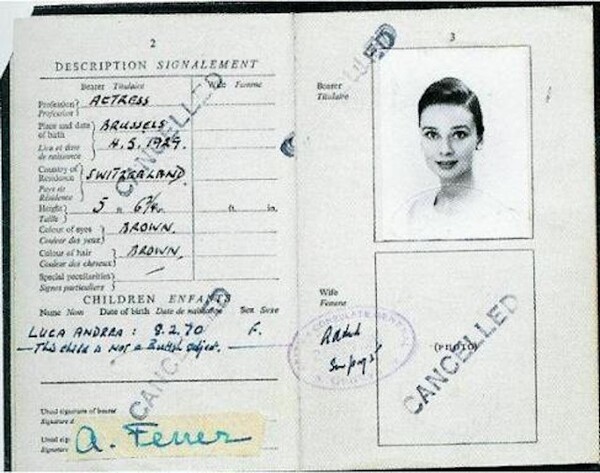 2
DESCRIPTION SIGNALEMENT
Bearer Titulaire
Wife Femme
Profession
Profession
ACTRESS
Place and date of birth
Lieu et date de naissance
BRUSSELS
4.5.1929.
Country of Residence
Pays de Résidence
SWITZERLAND
Height
Taille
5 ft. in.
Colour of eyes
Couleur des yeux
BROWN.
Colour of hair
Couleur des cheveux
BROWN.
Special peculiarities
Signes particuliers
CANCELLED
CHILDREN ENFANTS
Name Nom Date of birth Date de naissance Sex Sexe
LUCA ANDREA: 8.2.70 F.
This child is not a British subject.
CANCELLED
Usual signature of bearer
Signature
Usual sig
Signature
A. Ferrer
3
Bearer
Titulaire
Wife
Femme
CONSULATE GENERAL
(PHOTO)
CANCELLED